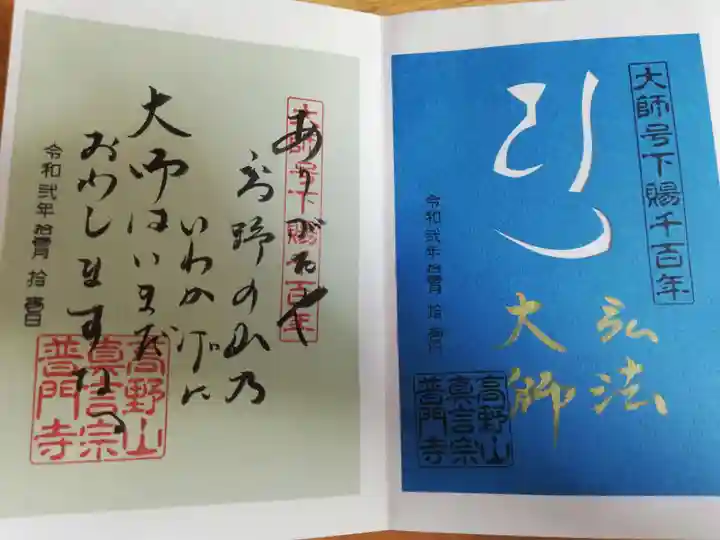 大師号下賜千百年
弘法
大師
令和弐年拾壹月拾壹日
高野山
真言宗
普門寺
大師号下賜千百年
ありがたや
高野の山乃
いわかげに
大師はいまだ
おわしますなる
令和弐年拾壹月拾壹日
高野山
真言宗
普門寺